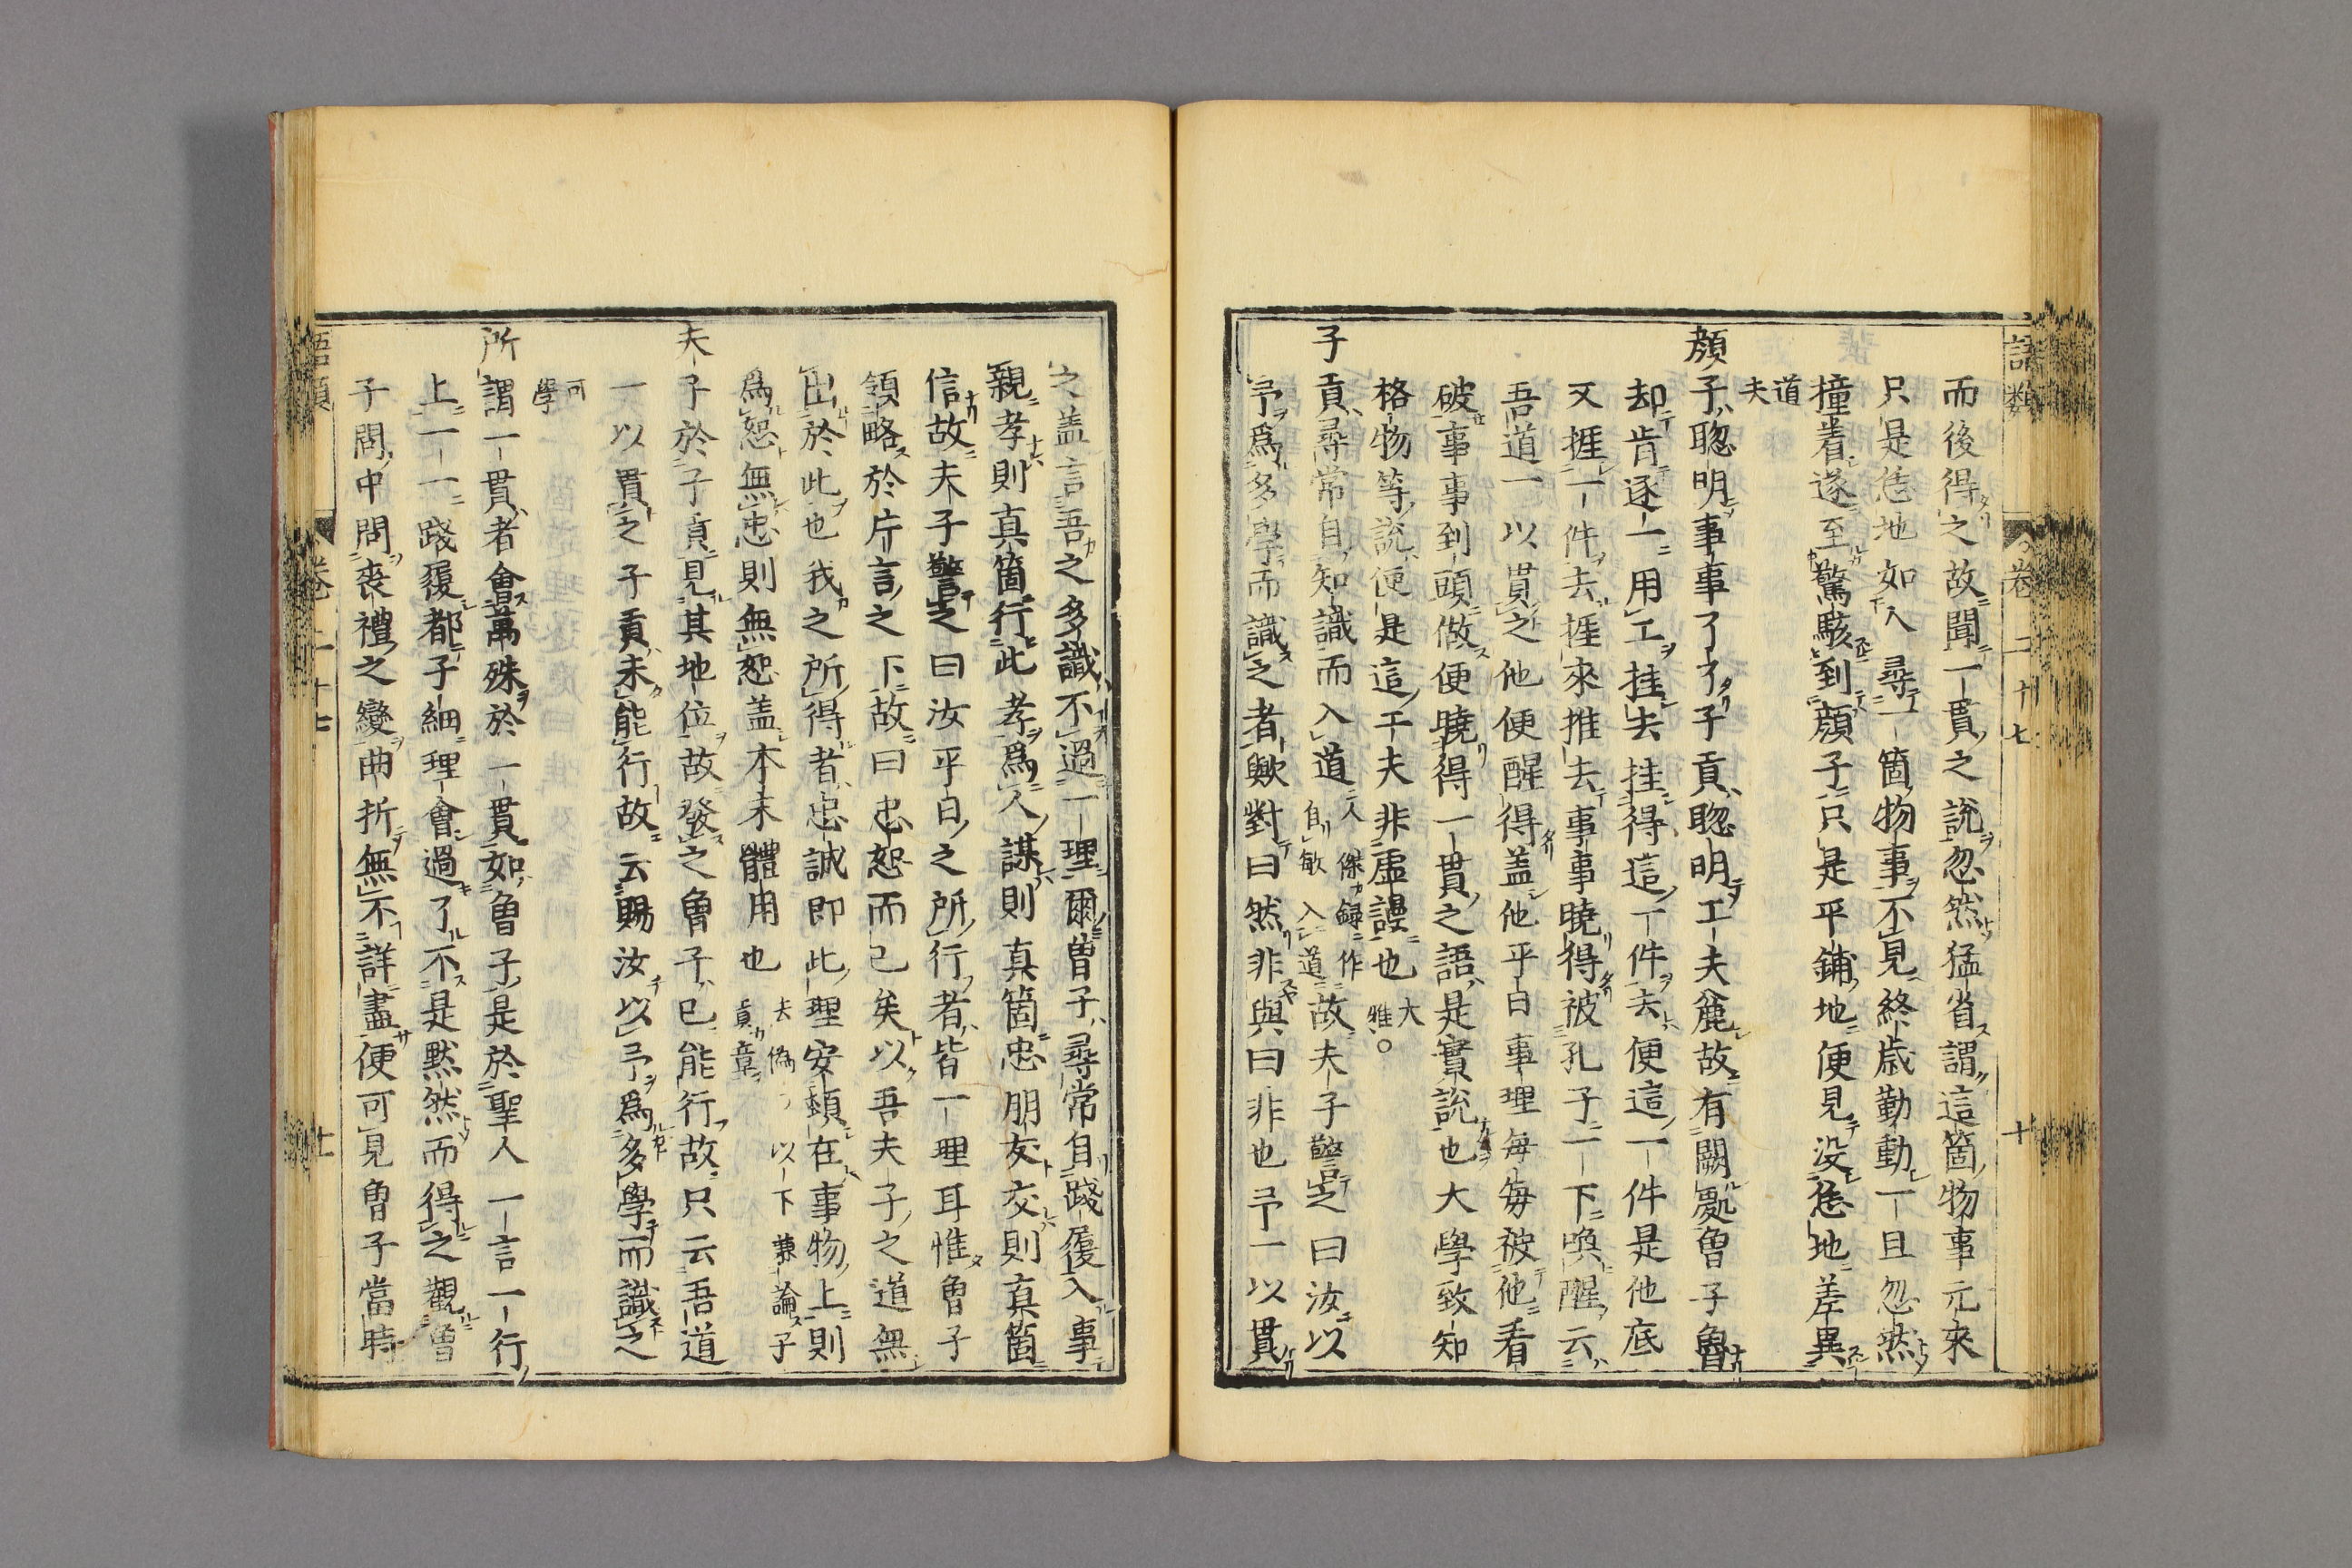 語類
卷二十七
十
而後得之故聞一貫之說忽然猛省謂這箇物事元來
只是恁地如人尋一箇物事不見終歲勤動一旦忽然
撞着遂至驚駭到顏子只是平鋪地便見没恁地差異
道夫
顏子聰明事事了了子貢聰明工夫麄故有闕處曾子魯
却肯逐一用工捱去捱得這一件去便這一件是他底
又捱一件去捱來推去事事曉得被孔子一下喚醒云
吾道一以貫之他便醒得盖他平日事理每每被他看
破事事到頭做便曉得一貫之語是實說也大學致知
格物等說便是這工夫非虛謾也大雅○
子貢尋常自知識而入道人傑録作自敏入道故夫子警之曰汝以
予爲多學而識之者歟對曰然非與曰非也予一以貫
之盖言吾之多識不過一理爾曾子尋常自踐履入事
親孝則真箇行此孝爲人謀則真箇忠朋友交則真箇
信故夫子警之曰汝平日之所行者皆一理耳惟曾子
領略於片言之下故曰忠恕而已矣以吾夫子之道無
出於此也我之所得者忠誠即此理安頓在事物上則
爲恕無忠則無恕盖本末體用也去僞以下兼論子貢章
夫子於子貢見其地位故發之曾子已能行故只云吾道
一以貫之子貢未能行故云賜汝以予爲多學而識之
可學
所謂一貫者會萬殊於一貫如曾子是於聖人一言一行
上一一踐履都子細理會過了不是默然而得之觀曾
子問中問喪禮之變曲折無不詳盡便可見曾子當時
語類
卷二十七
十一